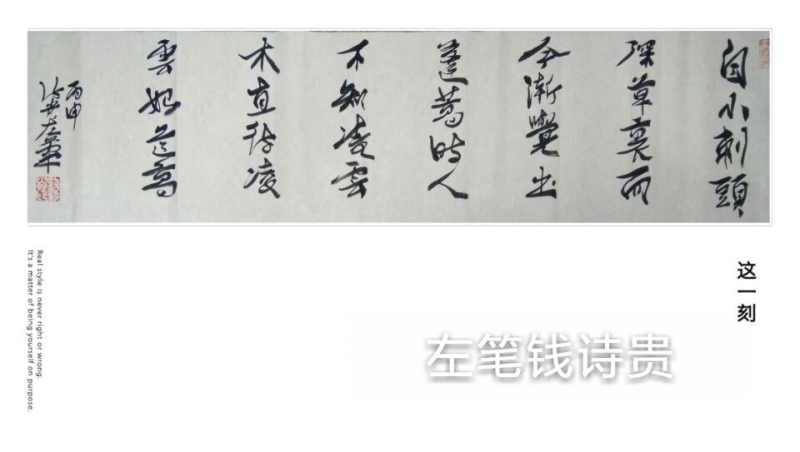 自小刺頭
深草裏而
今漸覺出
蓬蒿時人
不知凌雲
木直待凌
雲始道高
丙申
这一刻
左笔钱诗贵
Real style is never right or wrong.
It's a matter of being yourself on purpose.